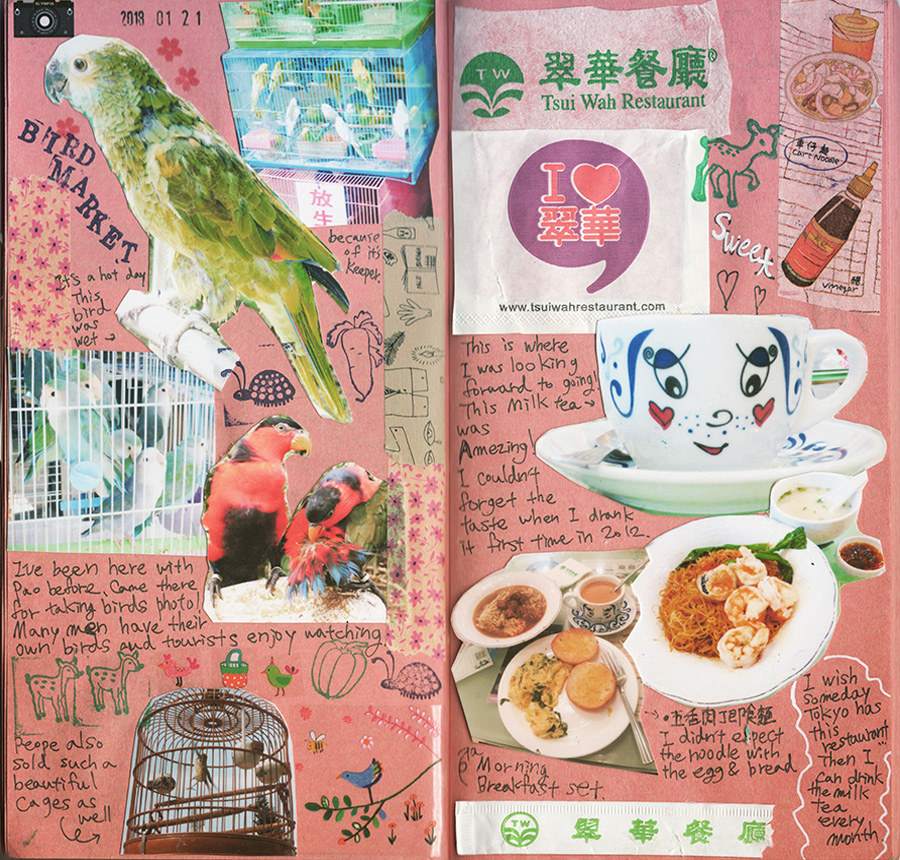 2018 01 21
BIRD
MARKET
放生
because
of its
keeper.
It's a hot day
This
bird
was
wet →
I've been here with
Pao before. Came there
for taking birds photo!
Many men have their
own birds and tourists enjoy watching
Peope also
sold such a
beautiful
cages as
well
TW
翠華餐廳®
Tsui Wah Restaurant
I ♥
翠華
www.tsuiwahrestaurant.com
Sweet
車仔麺
Cart Noodle
醋
vinegar
This is where
I was looking
forward to going!
This Milk tea →
was
Amezing!
I couldn't
forget the
taste when I drank
it first time in 2012.
→ •五香肉丁即食麺
I didn't expect
the noodle with
the egg & bread
Morning
Breakfast set.
I wish
Someday
Tokyo has
this
restaurant
Then I
can drink
the milk
tea
every
month
TW 翠華餐廳